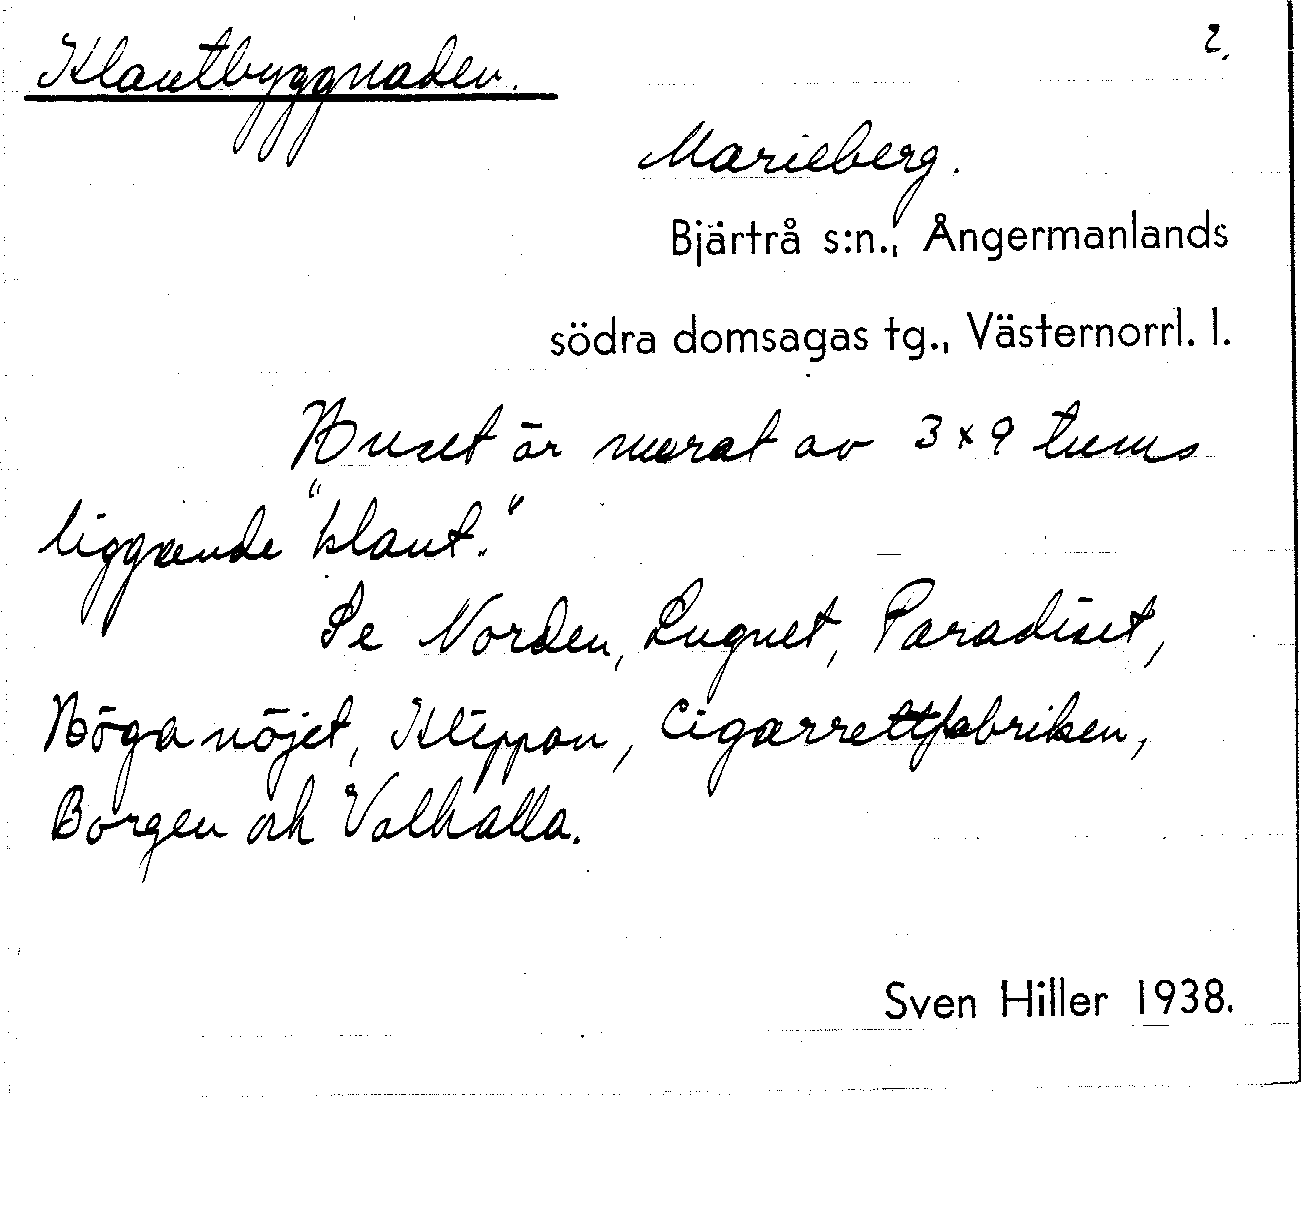 Klautbyggnaden. 2.
Marieberg.
Bjärtrå s:n., Ångermanlands
södra domsagas tg., Västernorrl. l.
Huset är murat av 3 x 9 tums
liggande "klaut."
Se Norden, Lugnet, Paradiset,
Höga nöjet, Klippan, Cigarrettfabriken,
Borgen och Valhalla.
Sven Hiller 1938.